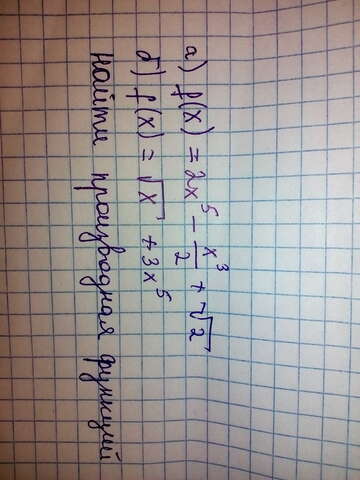 а) f(x) = 2x⁵ - x³/2 + √2
б) f(x) = √x + 3x⁵
найти производная функций